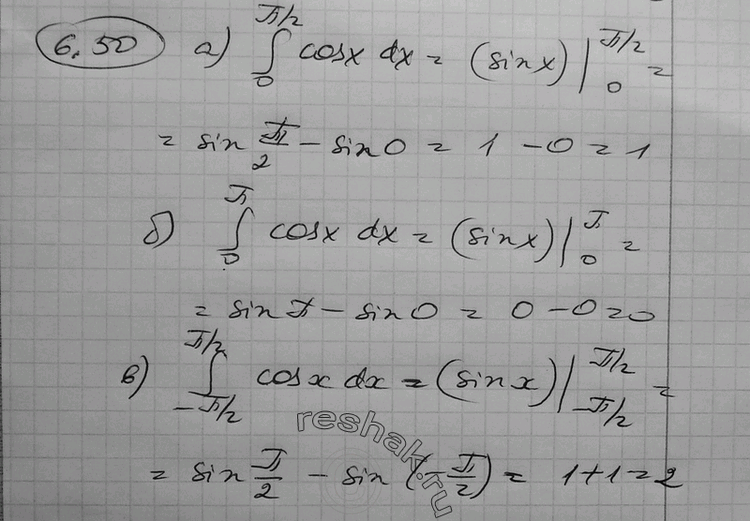 6.50 а) ∫₀^{π/2} cosx dx = (sinx) |₀^{π/2} =
= sin π/2 - sin 0 = 1 - 0 = 1
б) ∫₀^{π} cosx dx = (sinx) |₀^{π} =
= sin π - sin 0 = 0 - 0 = 0
в) ∫_{-π/2}^{π/2} cosx dx = (sinx) |_{-π/2}^{π/2} =
= sin π/2 - sin (-π/2) = 1 + 1 = 2
reshak.ru